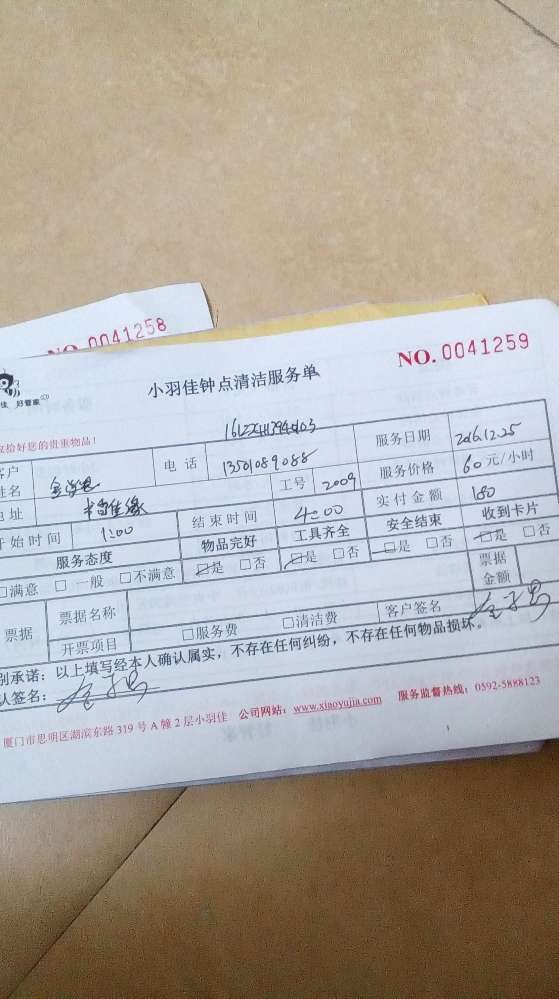 NO. 0041258
NO. 0041259
小羽佳钟点清洁服务单
佳 好管家
收拾好您的贵重物品！
客户姓名
电话 13501089088
服务日期 2016.12.25
地址
工号 2009
服务价格 60 元/小时
开始时间 1:00
结束时间 4:00
实付金额 180
服务态度 物品完好 工具齐全 安全结束 收到卡片
□满意 □一般 □不满意 □是 □否 □是 □否 □是 □否 □是 □否
票据 票据名称 票据金额
开票项目 □服务费 □清洁费 客户签名
别承诺：以上填写经本人确认属实，不存在任何纠纷，不存在任何物品损坏。
认签名：
厦门市思明区湖滨东路 319 号 A 幢 2 层小羽佳 公司网站：www.xiaoyujia.com 服务监督热线：0592-5888123